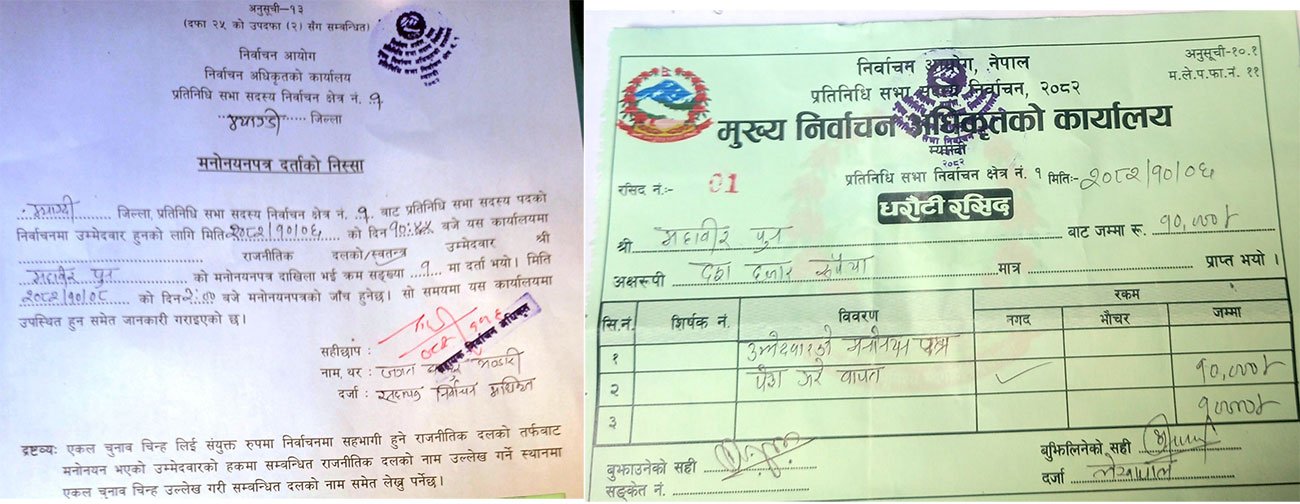 अनुसूची—१३
(दफा २५ को उपदफा (२) सँग सम्बन्धित)
निर्वाचन आयोग
निर्वाचन अधिकृतको कार्यालय
प्रतिनिधि सभा सदस्य निर्वाचन क्षेत्र नं. १
म्याग्दी जिल्ला
मनोनयनपत्र दर्ताको निस्सा
म्याग्दी जिल्ला, प्रतिनिधि सभा सदस्य निर्वाचन क्षेत्र नं. १ बाट प्रतिनिधि सभा सदस्य पदको
निर्वाचनमा उम्मेदवार हुनको लागि मिति २०८२/१०/०६ को दिन १०:४५ बजे यस कार्यालयमा
राजनीतिक दलको/स्वतन्त्र उम्मेदवार श्री
महावीर पुन को मनोनयनपत्र दाखिला भई क्रम सङ्ख्या १ मा दर्ता भयो। मिति
२०८२/१०/०८ को दिन बजे मनोनयनपत्रको जाँच हुनेछ। सो समयमा यस कार्यालयमा
उपस्थित हुन समेत जानकारी गराइएको छ।
सहीछाप :
सहायक निर्वाचन अधिकृत
नाम, थर : भण्डारी
दर्जा : निर्वाचन अधिकृत
द्रष्टव्यः एकल चुनाव चिन्ह लिई संयुक्त रुपमा निर्वाचनमा सहभागी हुने राजनीतिक दलको तर्फबाट
मनोनयन भएको उम्मेदवारको हकमा सम्बन्धित राजनीतिक दलको नाम उल्लेख गर्ने स्थानमा
एकल चुनाव चिन्ह उल्लेख गरी सम्बन्धित दलको नाम समेत लेख्नु पर्नेछ।
अनुसूची-१०.१
म.ले.प.फा.नं. ११
निर्वाचन आयोग, नेपाल
प्रतिनिधि सभा सदस्य निर्वाचन, २०८२
मुख्य निर्वाचन अधिकृतको कार्यालय
म्याग्दी
२०८२
रसिद नं.:- 01
प्रतिनिधि सभा निर्वाचन क्षेत्र नं. १ मितिः- २०८२/१०/०६
धरौटी रसिद
श्री महावीर पुन बाट जम्मा रू. १०,०००/-
अक्षरुपी दश हजार रुपैया मात्र प्राप्त भयो ।
सि.नं. शिर्षक नं. विवरण रकम
नगद भौचर जम्मा
१ उम्मेदवारको मनोनयन पत्र
२ पेश गरे वापत ✓ १०,०००/-
३ १०,०००/-
बुझाउनेको सही
सङ्केत नं.
बुझिलिनेको सही
दर्जा लेखापाल